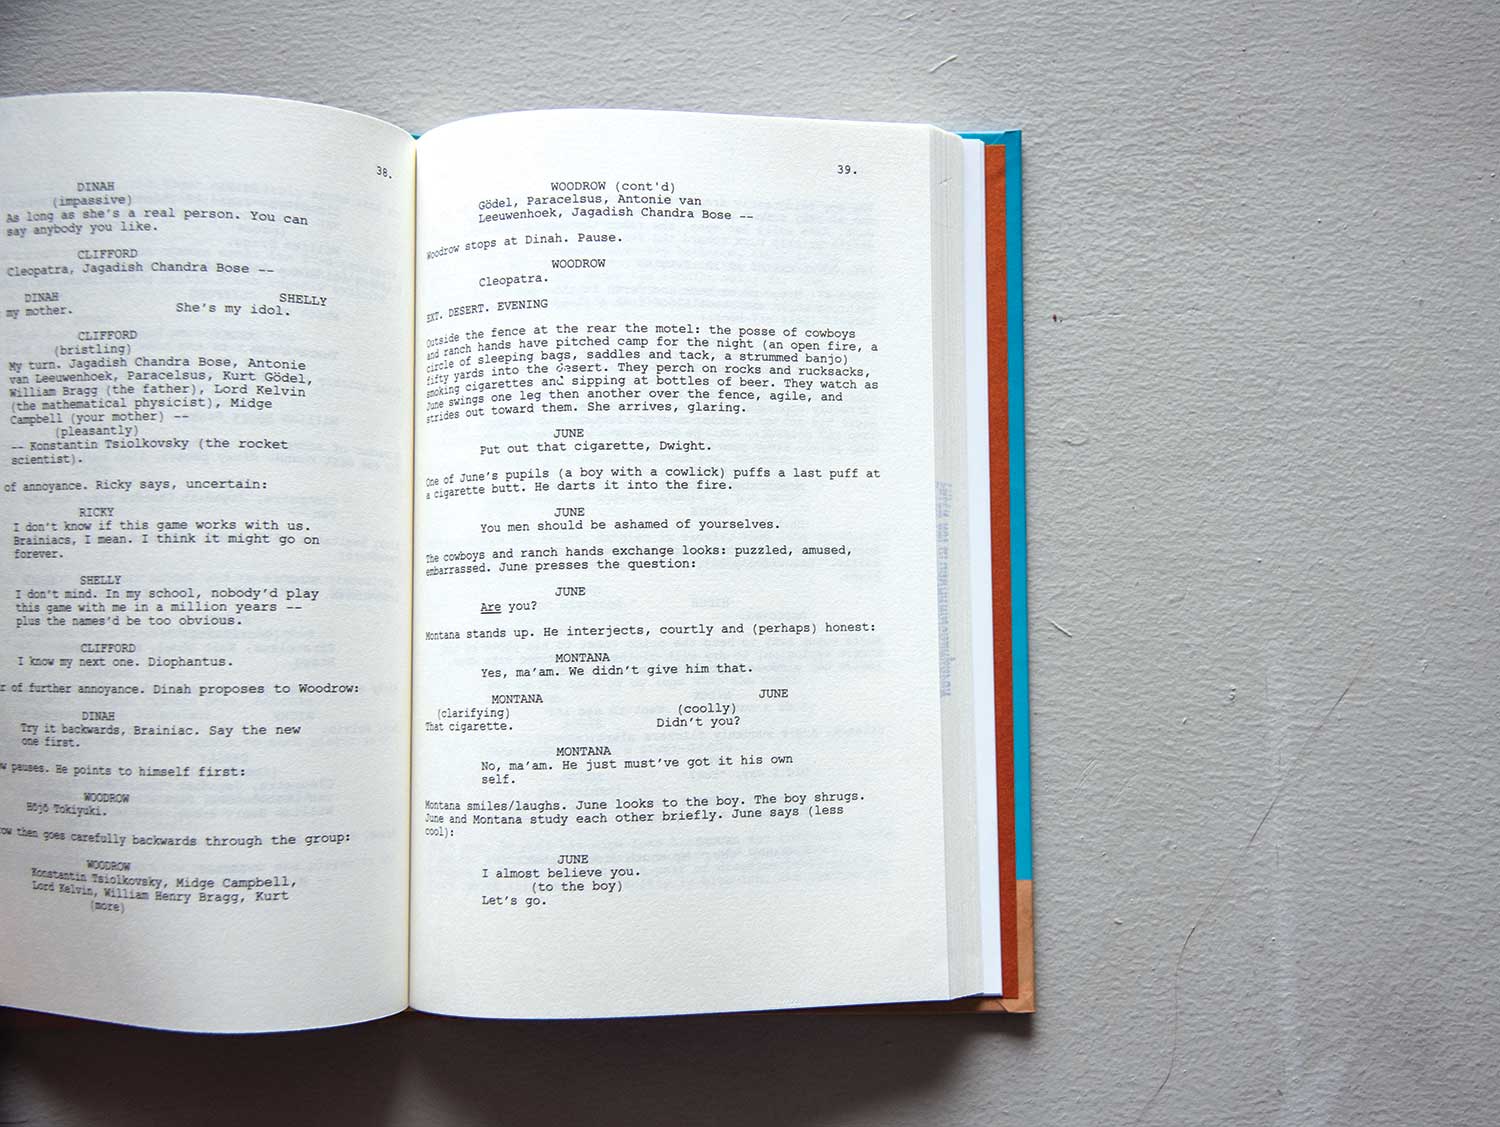 38.
DINAH
(impassive)
As long as she's a real person. You can
say anybody you like.
CLIFFORD
Cleopatra, Jagadish Chandra Bose --
DINAH
my mother.
SHELLY
She's my idol.
CLIFFORD
(bristling)
My turn. Jagadish Chandra Bose, Antonie
van Leeuwenhoek, Paracelsus, Kurt Gödel,
William Bragg (the father), Lord Kelvin
(the mathematical physicist), Midge
Campbell (your mother) --
(pleasantly)
-- Konstantin Tsiolkovsky (the rocket
scientist).
of annoyance. Ricky says, uncertain:
RICKY
I don't know if this game works with us.
Brainiacs, I mean. I think it might go on
forever.
SHELLY
I don't mind. In my school, nobody'd play
this game with me in a million years --
plus the names'd be too obvious.
CLIFFORD
I know my next one. Diophantus.
of further annoyance. Dinah proposes to Woodrow:
DINAH
Try it backwards, Brainiac. Say the new
one first.
pauses. He points to himself first:
WOODROW
Hōjō Tokiyuki.
then goes carefully backwards through the group:
WOODROW
Konstantin Tsiolkovsky, Midge Campbell,
Lord Kelvin, William Henry Bragg, Kurt
(more)
39.
WOODROW (cont'd)
Gödel, Paracelsus, Antonie van
Leeuwenhoek, Jagadish Chandra Bose --
Woodrow stops at Dinah. Pause.
WOODROW
Cleopatra.
EXT. DESERT. EVENING
Outside the fence at the rear the motel: the posse of cowboys
and ranch hands have pitched camp for the night (an open fire, a
circle of sleeping bags, saddles and tack, a strummed banjo)
fifty yards into the desert. They perch on rocks and rucksacks,
smoking cigarettes and sipping at bottles of beer. They watch as
June swings one leg then another over the fence, agile, and
strides out toward them. She arrives, glaring.
JUNE
Put out that cigarette, Dwight.
One of June's pupils (a boy with a cowlick) puffs a last puff at
a cigarette butt. He darts it into the fire.
JUNE
You men should be ashamed of yourselves.
The cowboys and ranch hands exchange looks: puzzled, amused,
embarrassed. June presses the question:
JUNE
Are you?
Montana stands up. He interjects, courtly and (perhaps) honest:
MONTANA
Yes, ma'am. We didn't give him that.
MONTANA
(clarifying)
That cigarette.
JUNE
(coolly)
Didn't you?
MONTANA
No, ma'am. He just must've got it his own
self.
Montana smiles/laughs. June looks to the boy. The boy shrugs.
June and Montana study each other briefly. June says (less
cool):
JUNE
I almost believe you.
(to the boy)
Let's go.